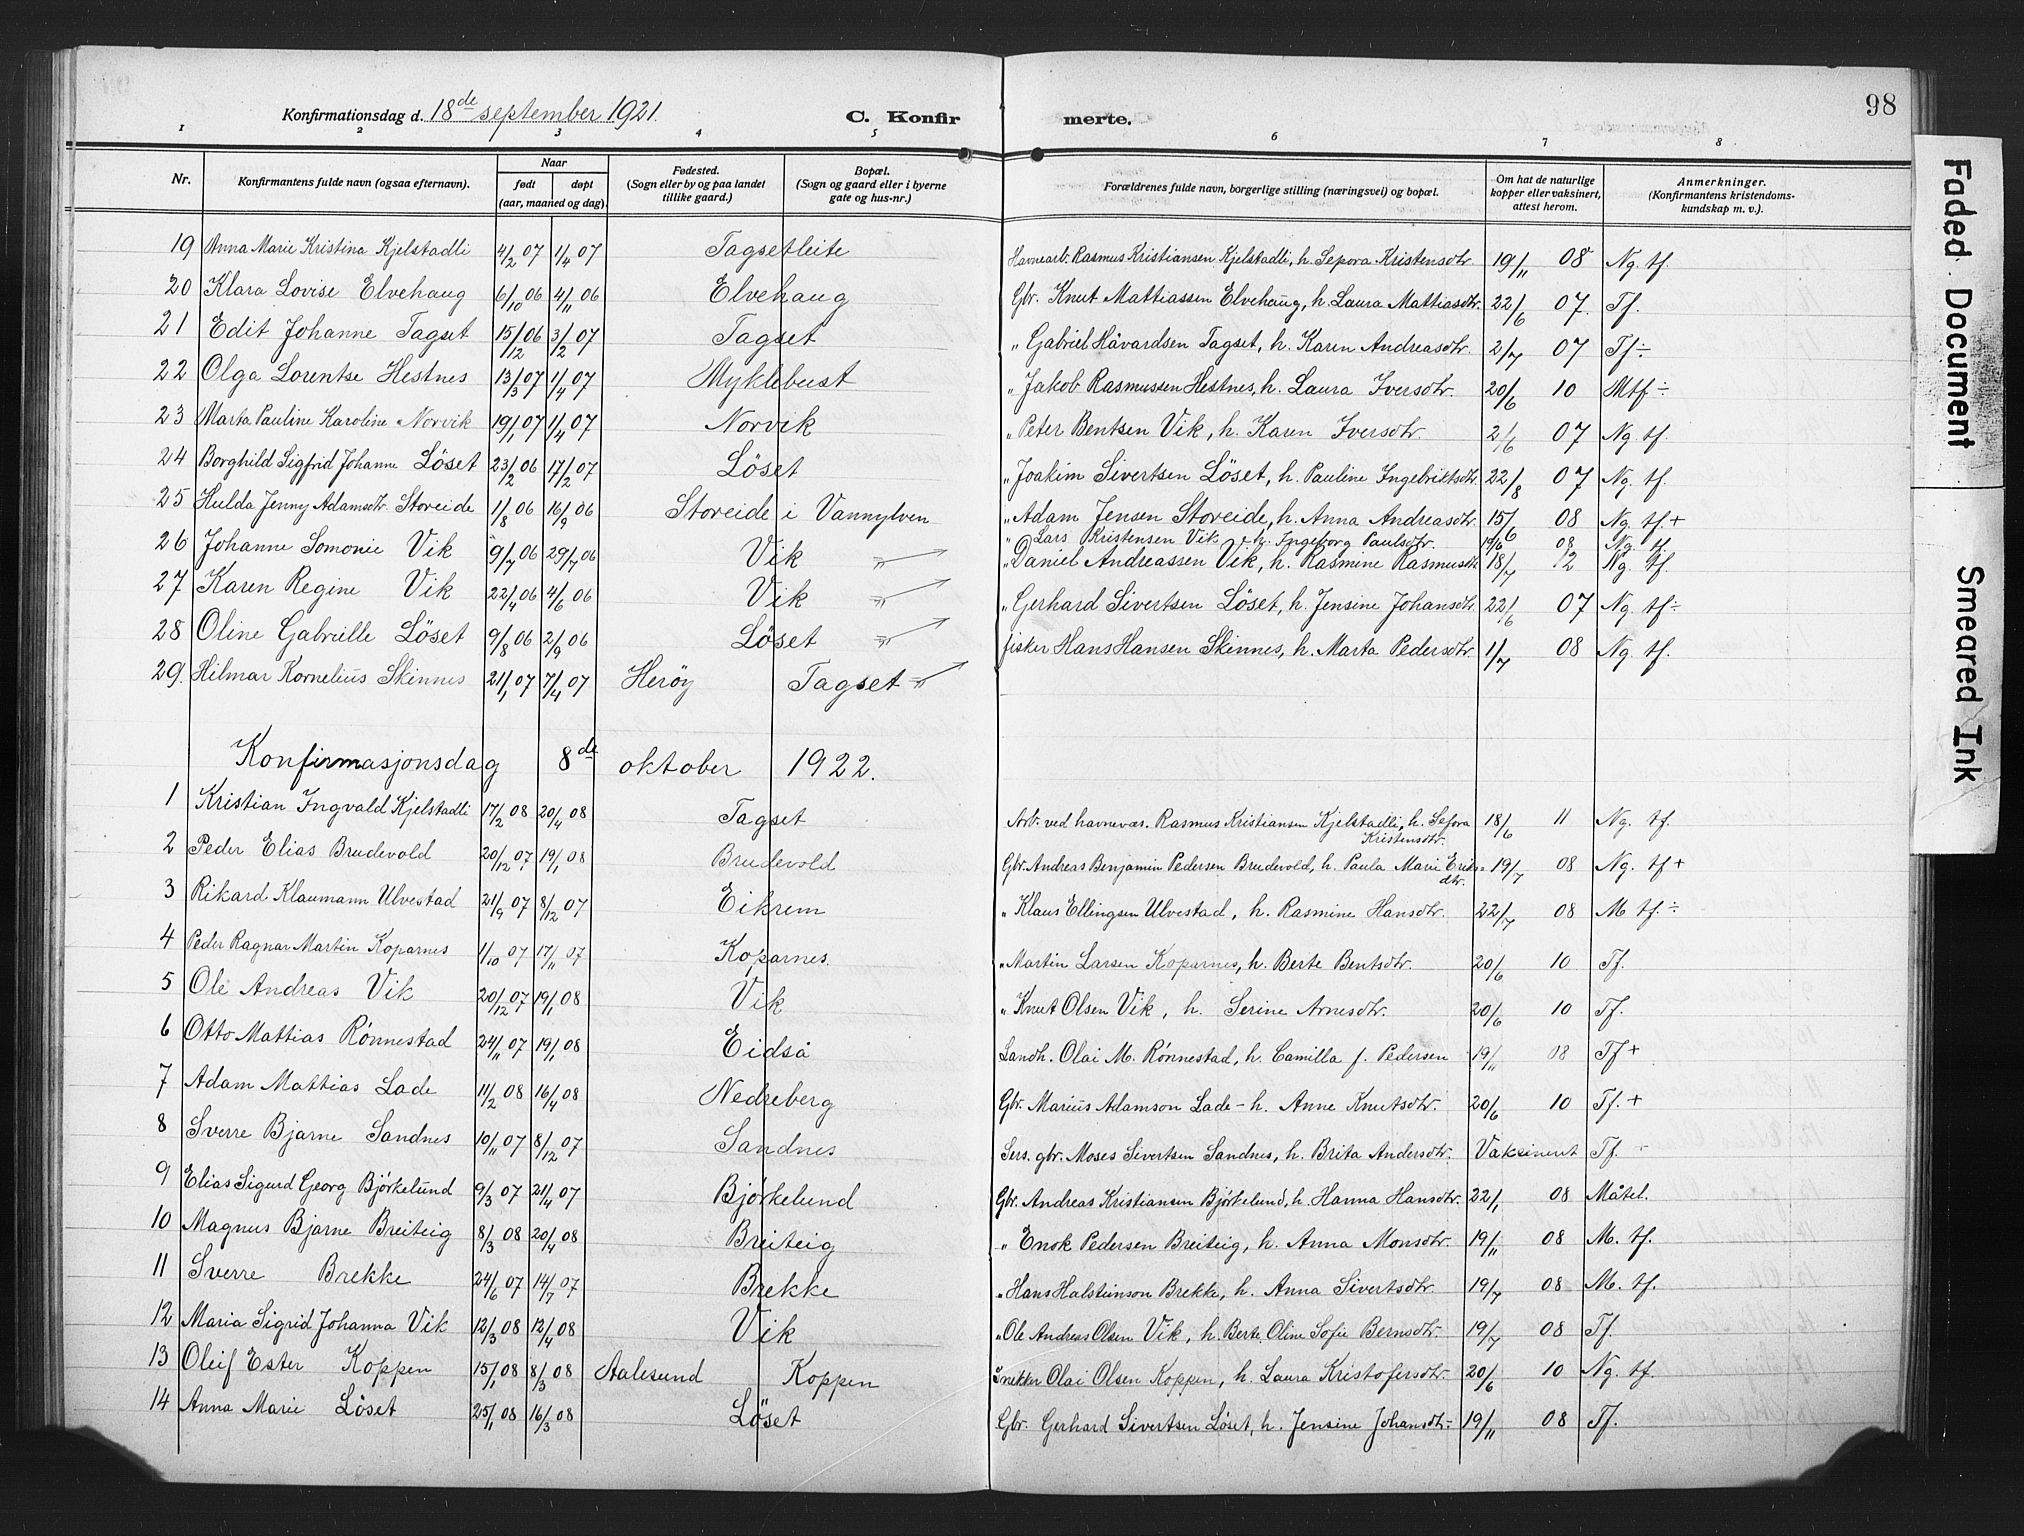 98
Konfirmationsdag d. 18de september 1921.
C. Konfirmerte.
1 2 3 4 5 6 7 8
Nr.
Konfirmantens fulde navn (ogsaa efternavn).
Naar
født døpt
(aar, maaned og dag).
Fødested.
(Sogn eller by og paa landet
tillike gaard.)
Bopæl.
(Sogn og gaard eller i byerne
gate og hus-nr.)
Forældrenes fulde navn, borgerlige stilling (næringsvei) og bopæl.
Om hat de naturlige
kopper eller vaksinert,
attest herom.
Anmerkninger.
(Konfirmantens kristendoms-
kundskap m. v.).
19 Anna Marie Kristina Kjelstadli 4/2 07 1/4 07 Tagsetleite Havnearb. Rasmus Kristiansen Kjelstadli, h. Sepora Kristensdtr. 19/11 08 Ng. tf.
20 Klara Lovise Elvehaug 6/10 06 4/11 06 Elvehaug Gbr. Knut Mattiassen Elvehaug, h. Laura Mattiasdtr. 22/6 07. Tf.
21 Edit Johanne Tagset 15/12 06 3/2 07 Tagset " Gabriel Håvardsen Tagset, h. Karen Andreasdtr. 2/7 07 Tf ÷
22 Olga Lorentse Hestnes 13/3 07 1/4 07 Myklebust " Jakob Rasmussen Hestnes, h. Laura Iversdtr. 20/6 10 Mtf ÷
23 Marta Pauline Karoline Norvik 19/1 07 1/4 07 Norvik " Peter Bentsen Vik, h. Karen Iversdtr. 2/6 07 Ng. tf.
24 Borghild Sigfrid Johanne Löset 23/2 06 17/2 07 Löset " Joakim Sivertsen Löset, h. Pauline Ingebriktsdtr 22/8 07 Ng. tf.
25 Hulda Jenny Adamsdtr. Storeide 1/8 06 16/9 06 Storeide i Vannylven " Adam Jensen Storeide, h. Anna Andreasdtr 15/6 08 Ng. tf. +
" Lars Kristensen Vik h. Ingeborg Paulsdtr. 08 Ng. tf.
26 Johanne Somonie Vik 9/7 06 29/7 06 Vik " Daniel Andreassen Vik, h. Rasmine Rasmusdtr 18/7 12 Ng. tf.
27 Karen Regine Vik 22/4 06 4/6 06 Vik " Gerhard Sivertsen Løset, h. Jensine Johansdtr. 22/6 07 Ng. tf ÷
28 Oline Gabrielle Löset 9/8 06 2/9 06 Löset fisker Hans Hansen Skinnes, h. Marta Pedersdtr. 1/7 08 Ng. tf.
29. Hilmar Kornelius Skinnes 21/1 07 7/4 07 Herøy Tagset
Konfirmasjonsdag 8de oktober 1922.
1 Kristian Ingvald Kjelstadli 17/2 08 20/4 08 Tagset Arb. ved havnevæs. Rasmus Kristiansen Kjelstadli, h. Sefora Kristensdtr. 18/6 11 Ng. tf.
2 Peder Elias Brudevold 20/12 07 19/1 08 Brudevold Gbr. Andreas Benjamin Pedersen Brudevold, h. Paula Marie Eriksdtr. 19/7 08 Ng. tf +
3 Rikard Klaumann Ulvestad 21/9 07 8/12 07 Eikrem " Klaus Ellingsen Ulvestad, h. Rasmine Hansdtr. 22/7 08 M tf. ÷
4 Peder Ragnar Martin Koparnes 1/10 07 17/11 07 Koparnes. " Martin Larsen Koparnes, h. Berte Bentsdtr. 20/6 10 Tf.
5 Ole Andreas Vik 20/12 07 19/1 08 Vik " Knut Olsen Vik, h. Serine Arnesdtr. 20/6 10 Tf.
6 Otto Mattias Rönnestad 24/11 07 19/1 08 Eidså Landh. Olai M. Rønnestad, h. Camilla f. Pedersen 19/11 08 Tf +
7 Adam Mattias Lade 11/2 08 16/4 08 Nedreberg Gbr. Marius Adamson Lade - h. Anne Knutsdtr. 20/6 10 Tf. +
8 Sverre Bjarne Sandnes 10/11 07 8/12 07 Sandnes Sers. gbr. Moses Sivertsen Sandnes, h. Brita Andersdtr. Vaksinert Tf. -
9 Elias Sigurd Georg Björkelund 9/3 07 21/4 07 Björkelund Gbr. Andreas Kristiansen Björkelund, h. Hanna Hansdtr. 22/1 08 Måtel.
10 Magnus Bjarne Breiteig 8/3 08 20/4 08 Breiteig " Enok Pedersen Breiteig, h. Anna Monsdtr. 19/11 08 M. tf.
11 Sverre Brekke 24/6 07 14/7 07 Brekke " Hans Halsteinson Brekke, h. Anna Sivertsdtr. 19/7 08 M. tf.
12 Maria Sigrid Johanna Vik 12/3 08 12/4 08 Vik " Ole Andreas Olsen Vik, h. Berte Oline Sofie Bernsdtr. 19/7 08 Tf.
13 Oleif Ester Koppen 15/1 08 8/3 08 Aalesund Koppen Snekker Olai Olsen Koppen, h. Laura Kristofersdtr. 20/6 10 Ng. tf.
14 Anna Marie Löset 25/1 08 16/3 08 Löset Gbr. Gerhard Sivertsen Løset, h. Jensine Johansdtr. 19/11 08 Tf.
Faded Document
Smeared Ink